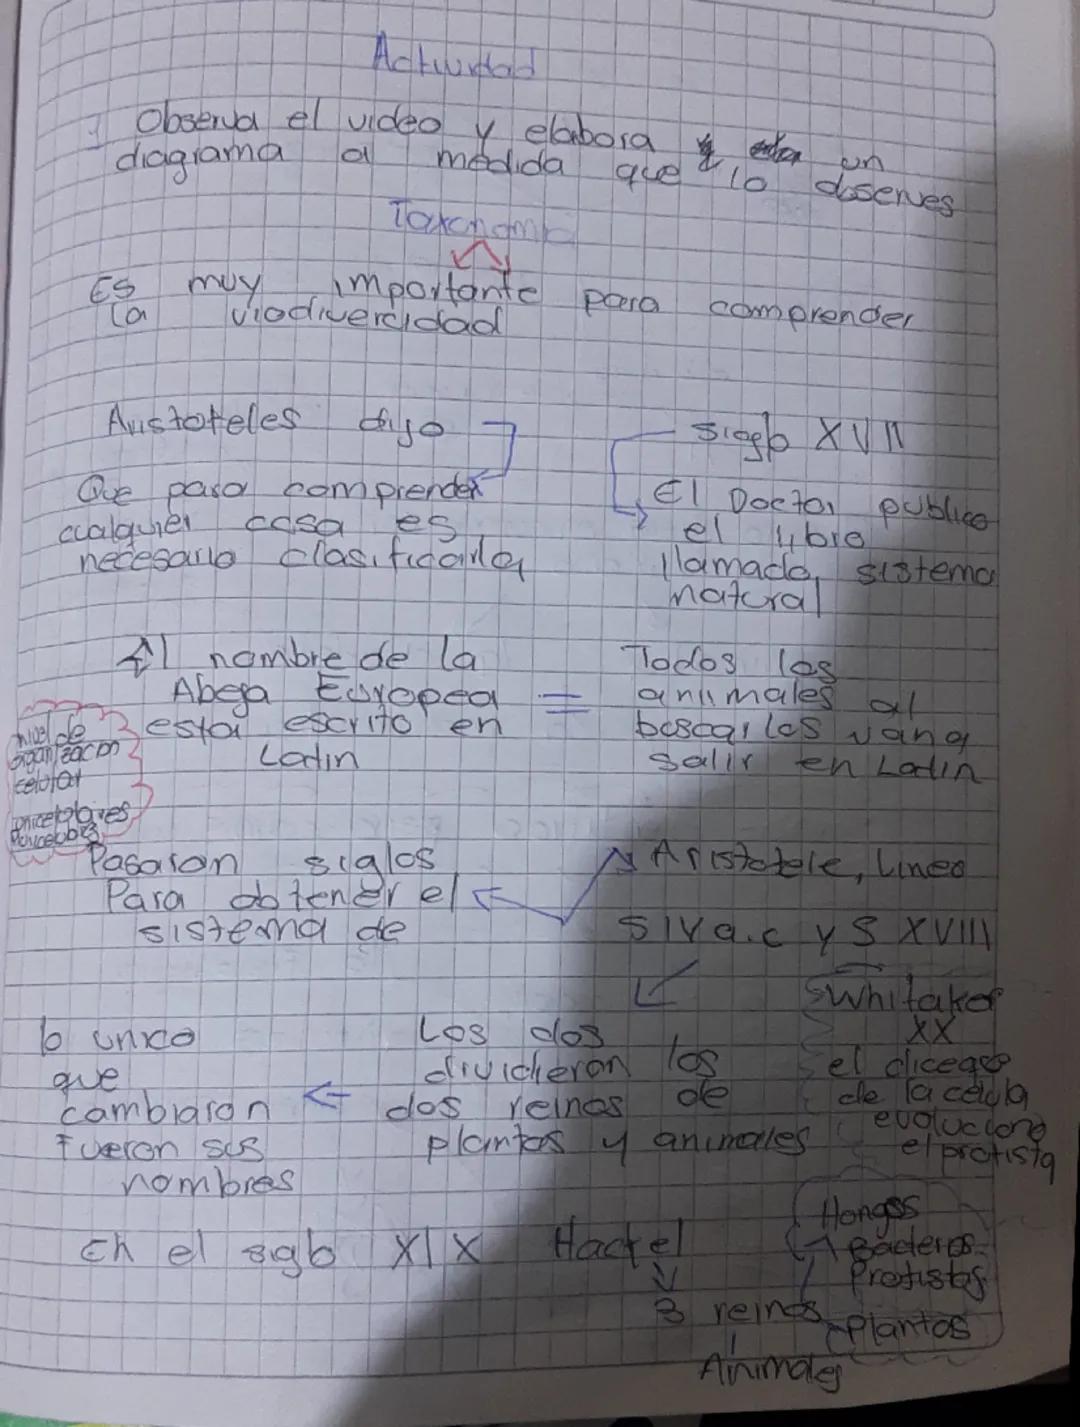 Actividad
1 Observa el video y elabora un
diagrama a medida que lo observes
Taxonomia
Es muy importante para comprender
la viodivercidad
Aristoteles dijo
Que para comprender
cualquier cosa es
necesario clasificarla
Sigglo XVII
El Doctor publico
el libro
llamado, sistema
natural
El nombre de la
Abeja Europea
esta escrito en
Latin
=
Todos los
animales al
boscarlos van a
salir en Latin
nivel de
organizacion
celolar
unicelolares
Pasaron siglos
Para obtener el
sistema de
Aristotele, Lineo
S IV a.c y S XVIII
Los dos
dividieron los
dos reinos de
plantas y animales
lo unico
que
cambiaron
fueron sus
nombres
Whitaker
XX
el dice que
de la celula
evoluciono
el protista
En el siglo XIX Hackel
3 reinos
Animales
Hongos
Bacterias
Protistas
Plantas